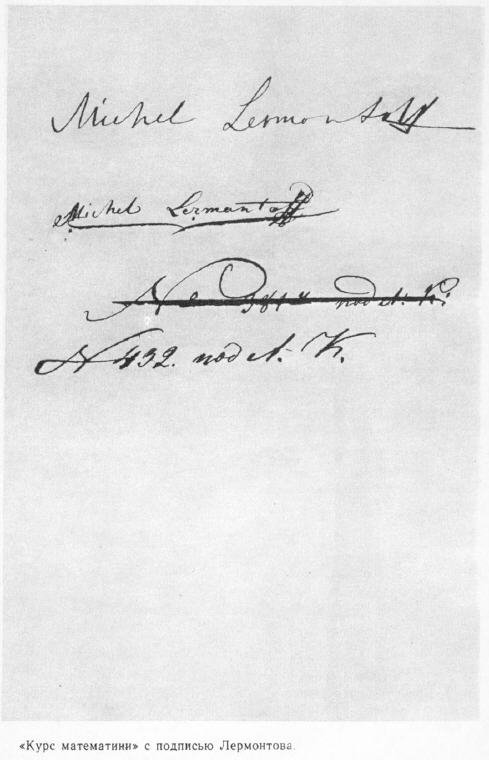 Michel Lermontoff
Michel Lermantoff
N 432. под А. К.
«Курс математики» с подписью Лермонтова.